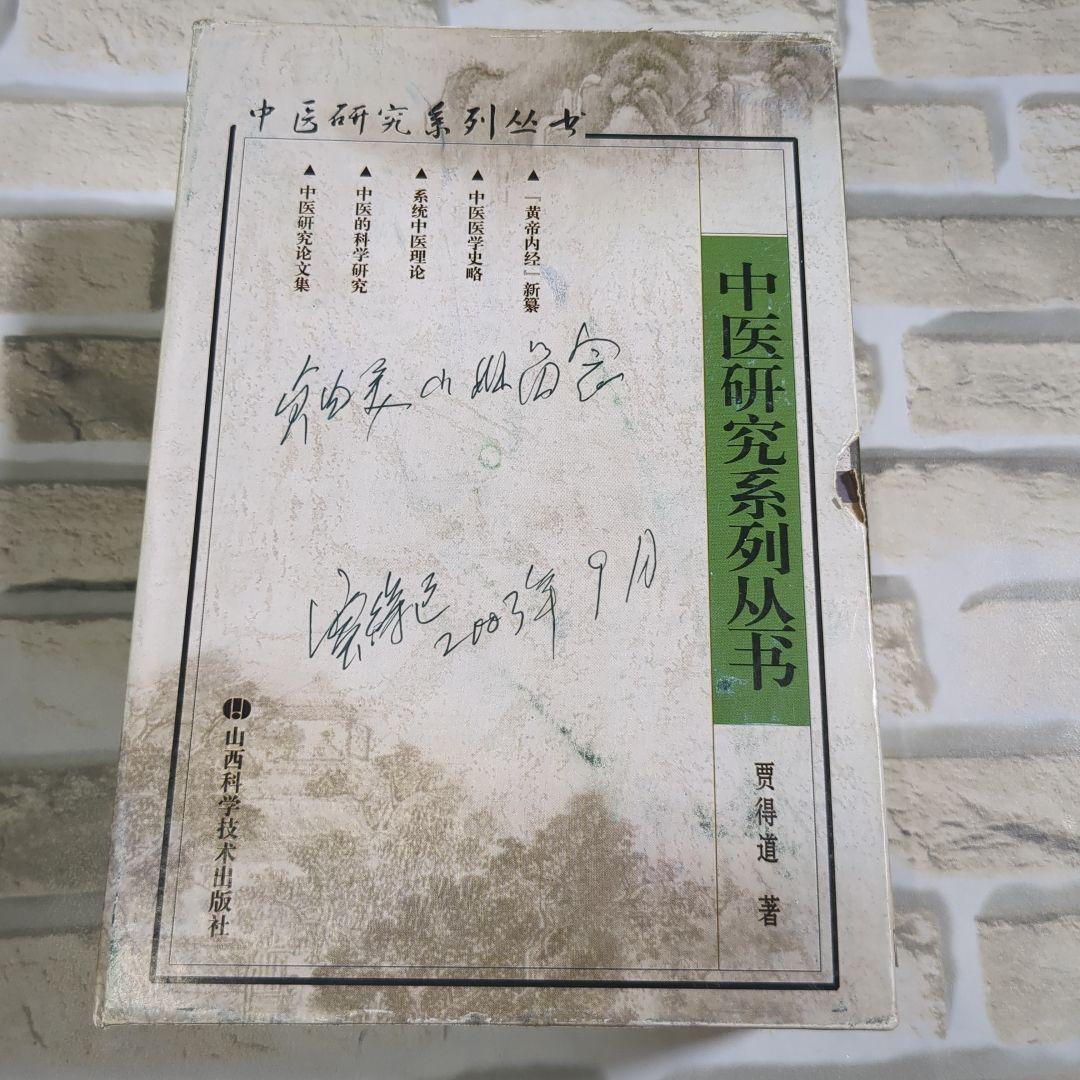 中医研究系列丛书
▲『黄帝内经』新纂
▲中医医学史略
▲系统中医理论
▲中医的科学研究
▲中医研究论文集
中医研究系列丛书
贾得道 著
2003年9月
山西科学技术出版社